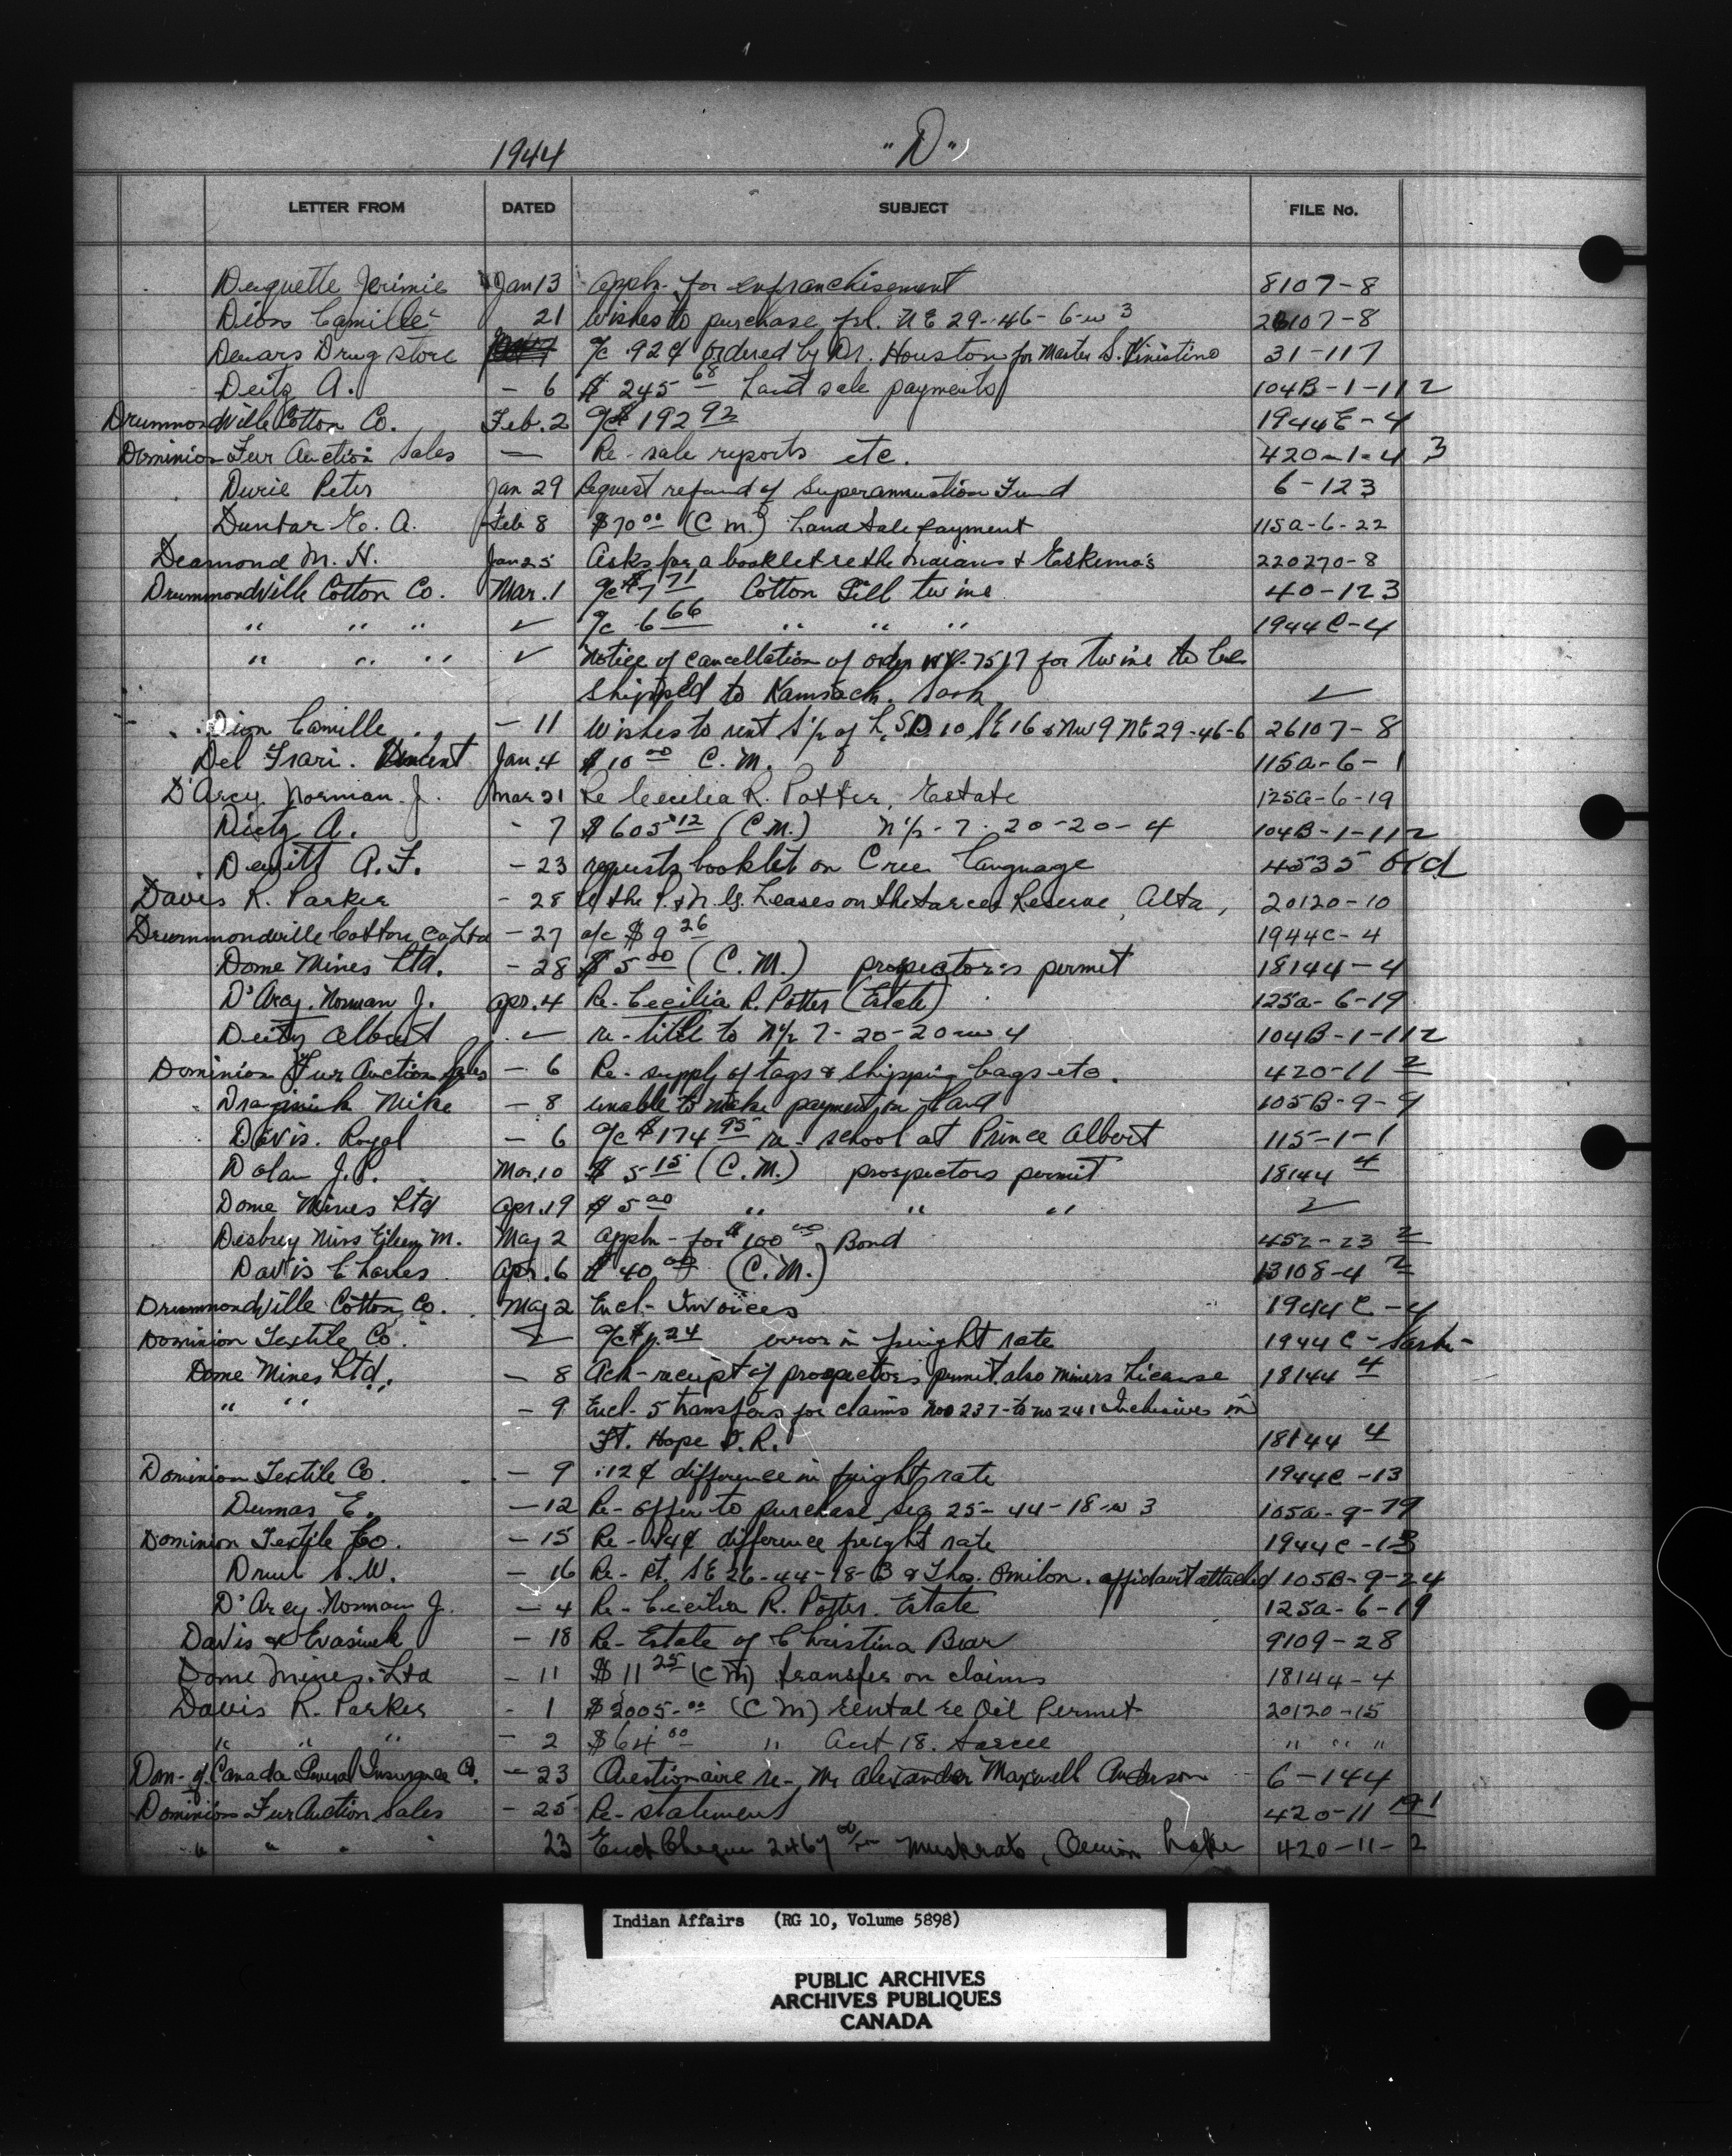 1944 "D"
LETTER FROM DATED SUBJECT FILE No.
Duquette Jerimie Jan 13 Appln. for enfranchisement 8107-8
Dion Camille 21 Wishes to purchase frl. NE 29-46-6-w 3 26107-8
Dewars Drug Store a/c .92¢ ordered by Dr. Houston for Master S. Kinistino 31-117
Deitz A. - 6 $ 245 68 Land sale payments 104B-1-112
Drummondville Cotton Co. Feb. 2 a/c $ 192 92 1944E-4
Dominion Fur Auction Sales — Re- sale reports etc. 420-1-4 3
Durie Peter Jan 29 Request refund of Superannuation Fund 6-123
Dunbar E. A. Feb 8 $70 00 (C.M.) Land Sale payment 115a-6-22
Desmond M. H. Jan 25 Asks for a booklet re the Indians & Eskimo's 220270-8
Drummondville Cotton Co. Mar. 1 a/c $7 71 Cotton Gill twine 40-123
" " " ✓ a/c 6 66 " " " 1944C-4
" " " ✓ Notice of cancellation of order 7517 for twine to be
shipped to Kamsack, Sask ✓
Dion Camille - 11 Wishes to rent S½ of L.S.D. 10 SE 16 & NW 9 NE 29-46-6 26107-8
Del Frari. Vincent Jan. 4 $ 10 00 C.M. 115a-6-1
D'Arcy Norman J. Mar 21 Re Cecilia R. Potter, Estate 125a-6-19
Dietz A. - 7 $ 605 12 (C.M.) N½-7-20-20-4 104B-1-112
Dewitt A. F. - 23 requests booklet on Cree language 4535 Old
Davis R. Parker - 28 re the P. & N. G. Leases on the Sarcee Reserve, Alta, 20120-10
Drummondville Cotton Co. Ltd - 27 a/c $ 9 26 1944C-4
Dome Mines Ltd. - 28 $ 5 00 (C.M.) prospector's permit 18144-4
D'Arcy. Norman J. Apr. 4 Re- Cecilia R. Potter (Estate) 125a-6-19
Deitz Albert ✓ re- title to N½ 7-20-20-w 4 104B-1-112
Dominion Fur Auction Sales - 6 Re- supply of tags & shipping bags etc. 420-11 2
Mike - 8 unable to make payment on land 105B-9-9
Davis. Royal - 6 a/c $ 174 95 re- school at Prince Albert 115-1-1
Dolan J. P. Mar. 10 $ 5 15 (C.M.) prospectors permit 18144 4
Dome Mines Ltd Apr. 19 $ 5 00 " " " ✓
Desbrey Miss Eileen M. May 2 appln- for $ 100 00 Bond 452-23 2
Davis Charles Apr. 6 $ 40 00 (C.M.) 13108-4 2
Drummondville Cotton Co. May 2 Encl- Invoices 1944 C-4
Dominion Textile Co. ✓ a/c $ .24 error in freight rate 1944 C- Sask-
Dome Mines Ltd. - 8 Ack- receipt of prospectors permit also miners License 18144 4
" " - 9 Encl- 5 transfers for claims nos 237- to no 241 Inclusives in
Ft. Hope I.R. 18144 4
Dominion Textile Co. - 9 .12¢ difference in freight rate 1944C-13
Dumas E. - 12 Re- offer to purchase Sec 25-44-18-w 3 105a-9-79
Dominion Textile Co. - 15 Re- .14¢ difference freight rate 1944C-13
S. W. - 16 Re- Pt. SE 26-44-18-B & Thos. affidavit attached 105B-9-24
D'Arcy Norman J. - 4 Re- Cecilia R. Potter. Estate 125a-6-19
Davis & - 18 Re- Estate of Christina Bear 9109-28
Dome Mines. Ltd - 11 $ 11 25 (CM) transfer on claims 18144-4
Davis R. Parker - 1 $ 2005.00 (CM) rental re Oil Permit 20120-15
" " " - 2 $ 64 00 " Aut 18. Sarcee " " "
Dom- of Canada General Insurance Co. - 23 Questionaire re- Mr Alexander Maxwell Anderson 6-144
Dominion Fur Auction Sales - 25 Re- statement 420-11 19-1
" " " 23 Encl Cheque 2467 Muskrats, Lake 420-11-2
Indian Affairs (RG 10, Volume 5898)
PUBLIC ARCHIVES
ARCHIVES PUBLIQUES
CANADA